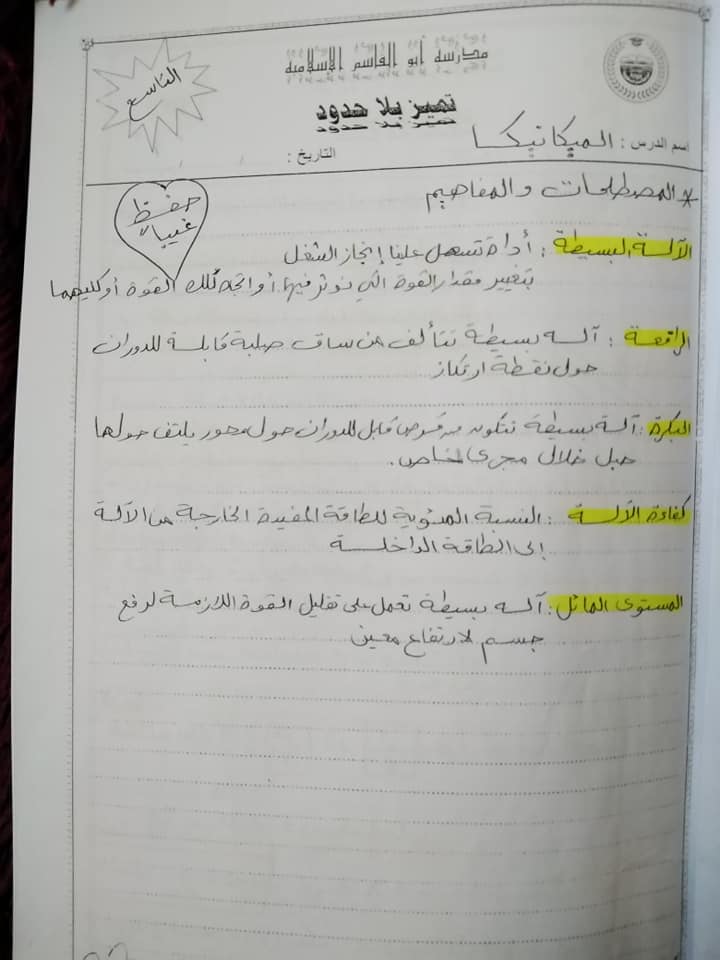 مدرسة أبو القاسم الإسلامية
التاسع
تميز بلا حدود
اسم الدرس : الميكانيكا
التاريخ : / /
* المصطلحات والمفاهيم
حفظ
غيباً
الآلة البسيطة : أداة تسهل علينا إنجاز الشغل
بتغيير مقدار القوة التي نؤثر فيها أو اتجاه تلك القوة أو كليهما
الرافعة : آلة بسيطة تتألف من ساق صلبة قابلة للدوران
حول نقطة ارتكاز
البكرة : آلة بسيطة تتكون من قرص قابل للدوران حول محور يلتف حولها
حبل خلال مجرى خاص.
كفاءة الآلة : النسبة المئوية للطاقة المفيدة الخارجة من الآلة
إلى الطاقة الداخلة
المستوى المائل : آلة بسيطة تعمل على تقليل القوة اللازمة لرفع
جسم لارتفاع معين